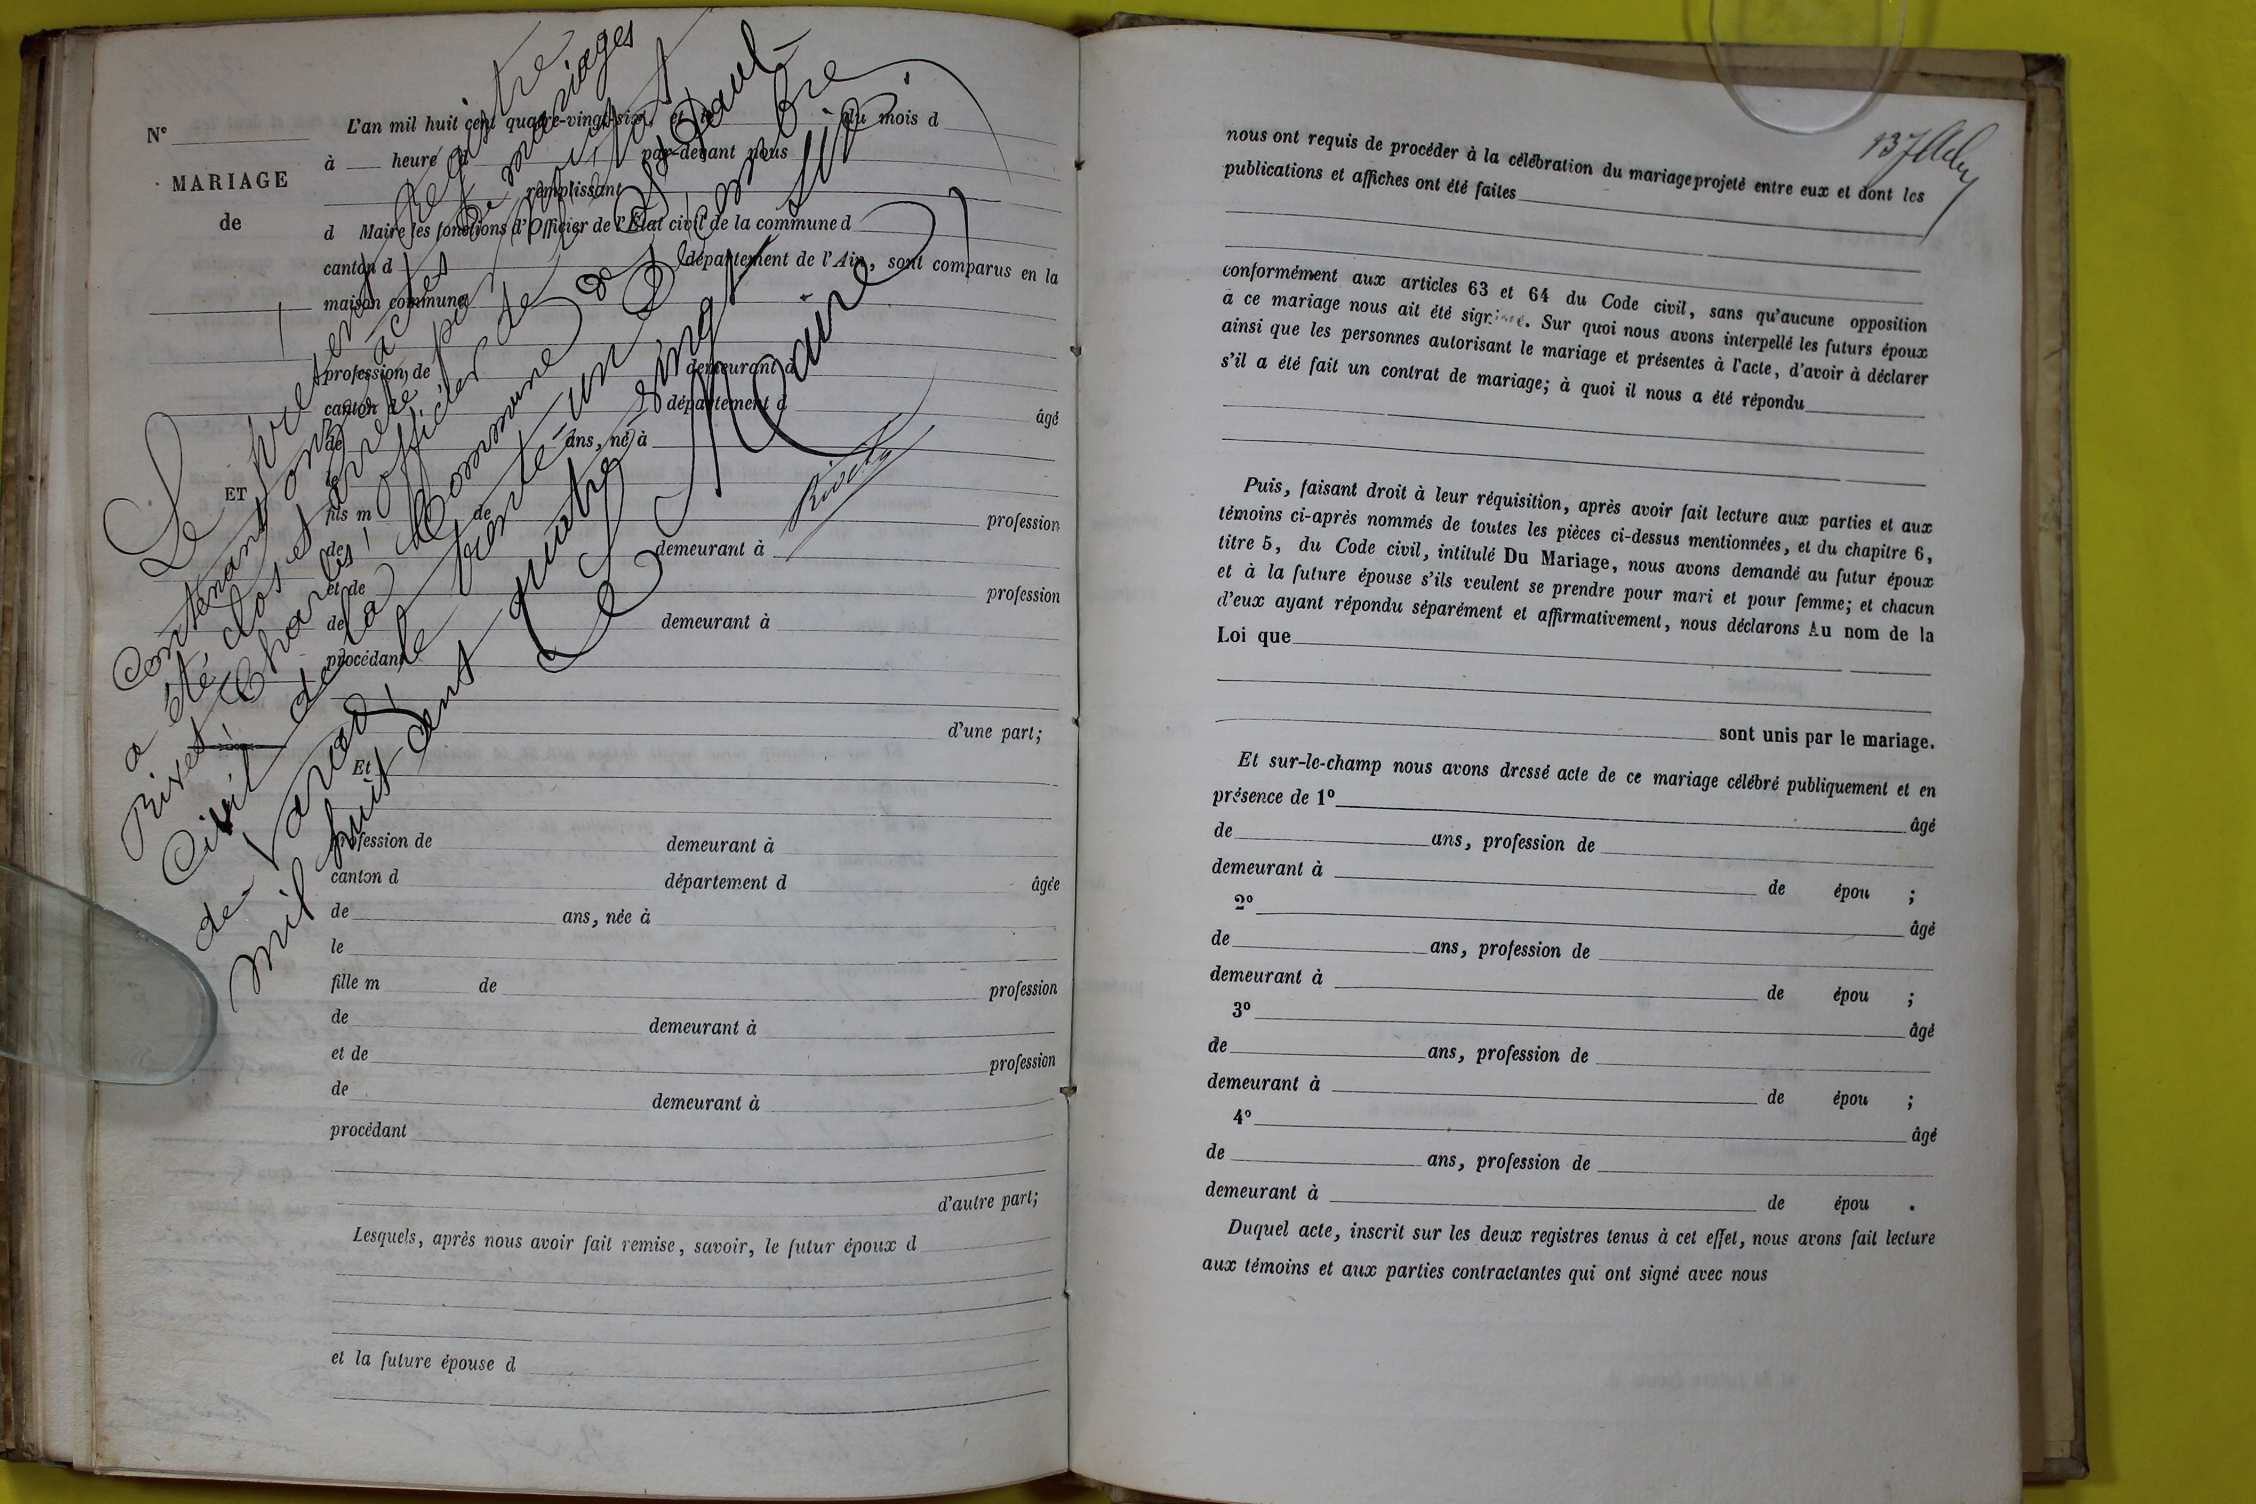 Le présent Registre
contenant onze actes de mariages
a été, clos et arrêté par nous
Rivet Charles, officier de l'état
Civil de la Commune de St Paul-
de-Varax, le trente-un Décembre
mil huit cent quatre vingt six
Le Maire
Rivet
N°
MARIAGE
de
ET
L'an mil huit cent quatre-vingt-six, et le du mois d
à heure d par-devant nous
remplissant
d Maire les fonctions d'Officier de l'État civil de la commune d
canton d département de l'Ain, sont comparus en la
maison commune
profession de demeurant à
canton d département d âgé
de ans, né à
le
fils m de profession
de demeurant à
et de profession
de demeurant à
procédant
d'une part;
Et
profession de demeurant à
canton d département d âgée
de ans, née à
le
fille m de profession
de demeurant à
et de profession
de demeurant à
procédant
d'autre part;
Lesquels, après nous avoir fait remise, savoir, le futur époux d
et la future épouse d
nous ont requis de procéder à la célébration du mariage projeté entre eux et dont les
publications et affiches ont été faites
conformément aux articles 63 et 64 du Code civil, sans qu'aucune opposition
à ce mariage nous ait été signifiée. Sur quoi nous avons interpellé les futurs époux
ainsi que les personnes autorisant le mariage et présentes à l'acte, d'avoir à déclarer
s'il a été fait un contrat de mariage; à quoi il nous a été répondu
Puis, faisant droit à leur réquisition, après avoir fait lecture aux parties et aux
témoins ci-après nommés de toutes les pièces ci-dessus mentionnées, et du chapitre 6,
titre 5, du Code civil, intitulé Du Mariage, nous avons demandé au futur époux
et à la future épouse s'ils veulent se prendre pour mari et pour femme; et chacun
d'eux ayant répondu séparément et affirmativement, nous déclarons Au nom de la
Loi que
sont unis par le mariage.
Et sur-le-champ nous avons dressé acte de ce mariage célébré publiquement et en
présence de 1°
âgé
de ans, profession de
demeurant à de épou ;
2°
âgé
de ans, profession de
demeurant à de épou ;
3°
âgé
de ans, profession de
demeurant à de épou ;
4°
âgé
de ans, profession de
demeurant à de épou .
Duquel acte, inscrit sur les deux registres tenus à cet effet, nous avons fait lecture
aux témoins et aux parties contractantes qui ont signé avec nous